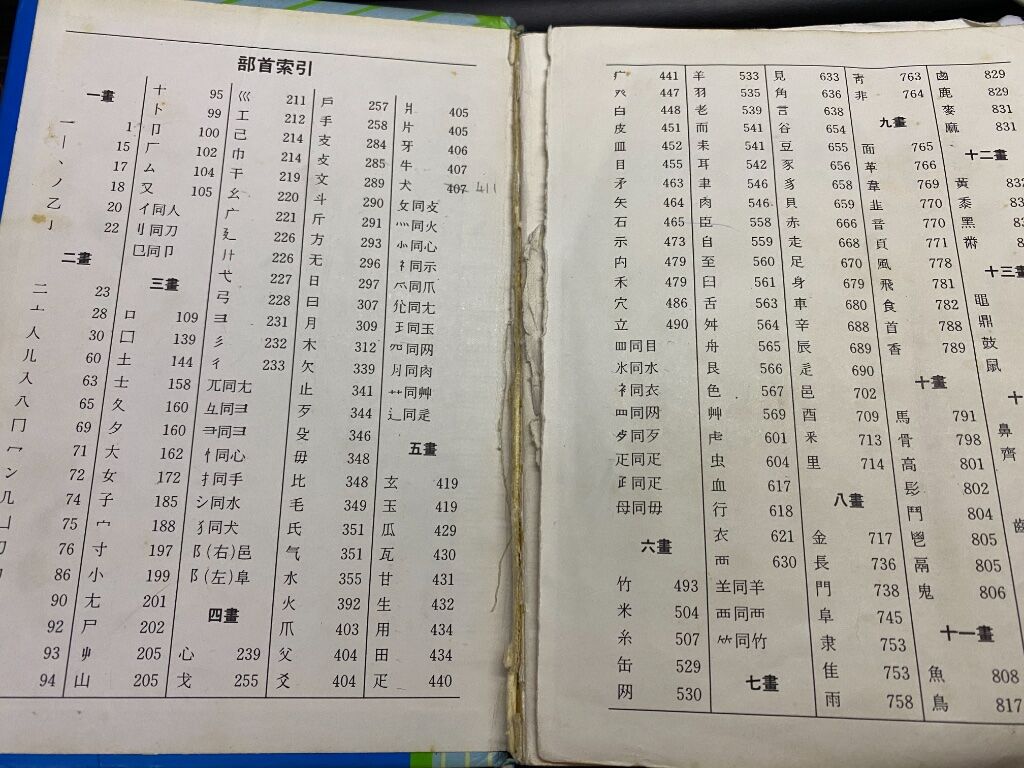 部首索引
一畫
一 1
丨 15
丶 17
丿 18
乙 20
亅 22
二畫
二 23
亠 28
人 30
儿 60
入 63
八 65
冂 69
冖 71
冫 72
几 74
凵 75
刀 76
86
90
92
93
94
十 95
卜 99
卩 100
厂 102
厶 104
又 105
亻同人
刂同刀
㔾同卩
三畫
口 109
囗 139
土 144
士 158
夂 160
夕 160
大 162
女 172
子 185
宀 188
寸 197
小 199
尢 201
尸 202
屮 205
山 205
巛 211
工 212
己 214
巾 214
干 219
幺 220
广 221
廴 226
廾 226
弋 227
弓 228
彐 231
彡 232
彳 233
兀同尢
彑同彐
⺕同彐
忄同心
扌同手
氵同水
犭同犬
阝(右)邑
阝(左)阜
四畫
心 239
戈 255
戶 257
手 258
支 284
攴 285
文 289
斗 290
斤 291
方 293
无 296
日 297
曰 307
月 309
木 312
欠 339
止 341
歹 344
殳 346
毋 348
比 348
毛 349
氏 351
气 351
水 355
火 392
爪 403
父 404
爻 404
爿 405
片 405
牙 406
牛 407
犬 407 411
攵同攴
灬同火
⺗同心
礻同示
爫同爪
尣同尢
王同玉
罒同网
月同肉
艹同艸
辶同辵
五畫
玄 419
玉 419
瓜 429
瓦 430
甘 431
生 432
用 434
田 434
疋 440
疒 441
癶 447
白 448
皮 451
皿 452
目 455
矛 463
矢 464
石 465
示 473
禸 479
禾 479
穴 486
立 490
罒同目
氺同水
衤同衣
罒同网
歺同歹
疋同疋
𤴔同疋
母同毋
六畫
竹 493
米 504
糸 507
缶 529
网 530
羊 533
羽 535
老 539
而 541
耒 541
耳 542
聿 546
肉 546
臣 558
自 559
至 560
臼 561
舌 563
舛 564
舟 565
艮 566
色 567
艸 569
虍 601
虫 604
血 617
行 618
衣 621
襾 630
𦍌同羊
西同襾
⺮同竹
七畫
見 633
角 636
言 638
谷 654
豆 655
豕 656
豸 658
貝 659
赤 666
走 668
足 670
身 679
車 680
辛 688
辰 689
辵 690
邑 702
酉 709
釆 713
里 714
八畫
金 717
長 736
門 738
阜 745
隶 753
隹 753
雨 758
靑 763
非 764
九畫
面 765
革 766
韋 769
韭 770
音 770
頁 771
風 778
飛 781
食 782
首 788
香 789
十畫
馬 791
骨 798
高 801
髟 802
鬥 804
鬯 805
鬲 805
鬼 806
十一畫
魚 808
鳥 817
鹵 829
鹿 829
麥 831
麻 831
十二畫
黃
黍
黑
黹
十三畫
黽
鼎
鼓
鼠
十
鼻
齊
齒